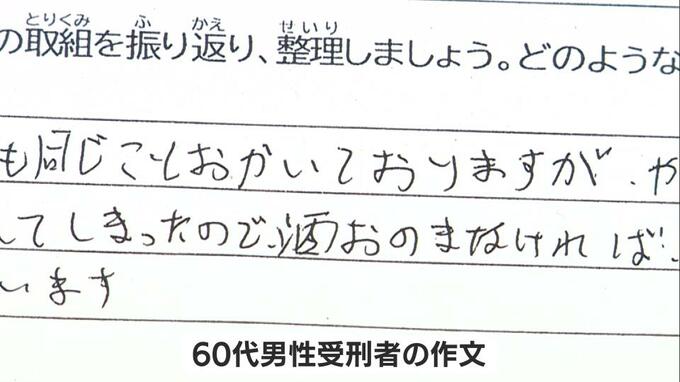 とりくみ ふ かえ せいり
の取組を振り返り、整理しましょう。どのような
も同じことおかいておりますが、や
してしまったので、酒おのまなければ、
います
60代男性受刑者の作文